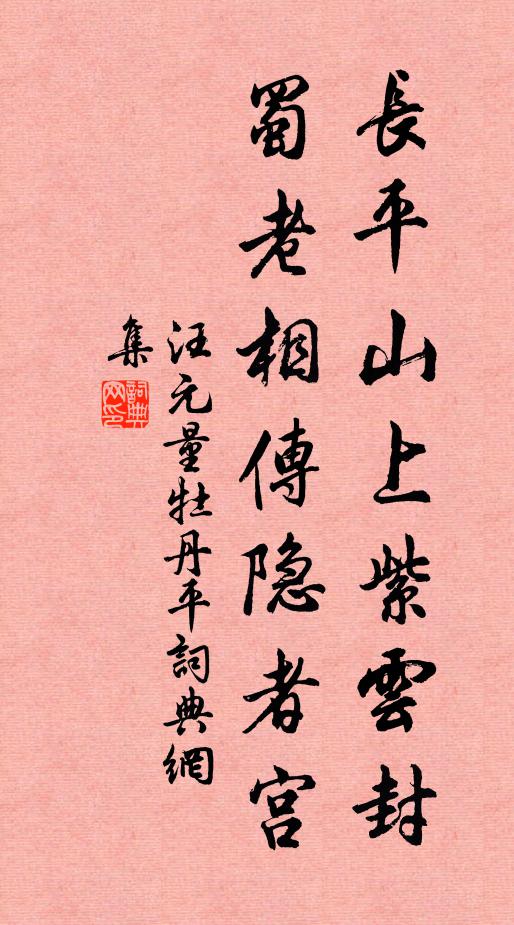 長平山上紫雲封
蜀老相傳隐者宫
汪元量牡丹平詞典網
集
詞典網印